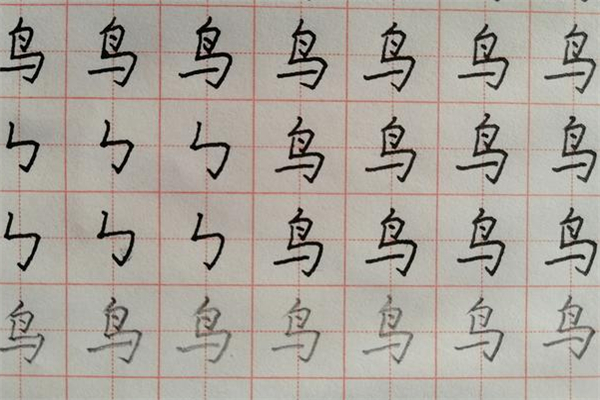 鸟鸟鸟鸟鸟鸟鸟
㇉㇉㇉鸟鸟鸟鸟
㇉㇉㇉鸟鸟鸟鸟
鸟鸟鸟鸟鸟鸟鸟